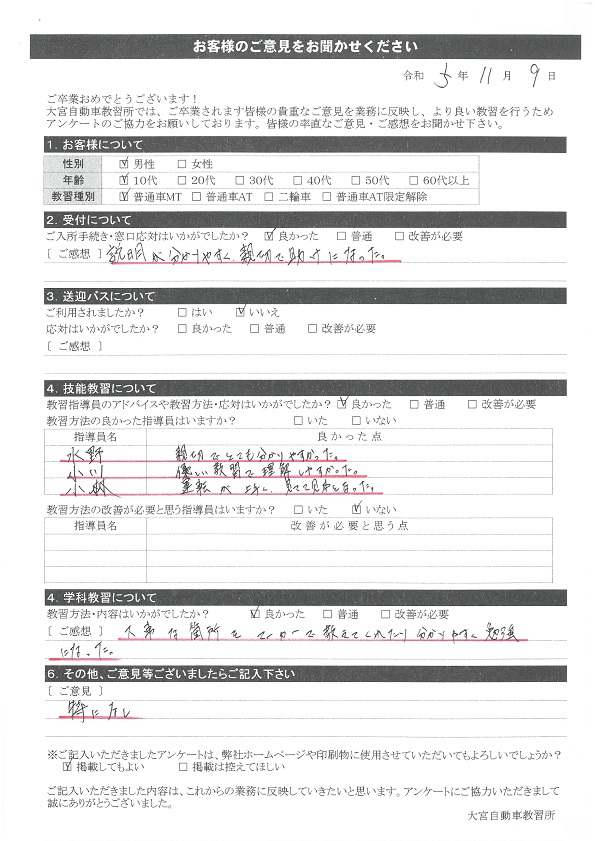 お客様のご意見をお聞かせください
令和 5 年 11 月 9 日
ご卒業おめでとうございます！
大宮自動車教習所では、ご卒業されます皆様の貴重なご意見を業務に反映し、より良い教習を行うため
アンケートのご協力をお願いしております。皆様の率直なご意見・ご感想をお聞かせ下さい。
1. お客様について
性別 ☑ 男性 □ 女性
年齢 ☑ 10代 □ 20代 □ 30代 □ 40代 □ 50代 □ 60代以上
教習種別 ☑ 普通車MT □ 普通車AT □ 二輪車 □ 普通車AT限定解除
2. 受付について
ご入所手続き・窓口応対はいかがでしたか？ ☑ 良かった □ 普通 □ 改善が必要
[ ご感想 ] 説明が分かりやすく、親切で助けになった。
3. 送迎バスについて
ご利用されましたか？ □ はい ☑ いいえ
応対はいかがでしたか？ □ 良かった □ 普通 □ 改善が必要
[ ご感想 ]
4. 技能教習について
教習指導員のアドバイスや教習方法・応対はいかがでしたか？ ☑ 良かった □ 普通 □ 改善が必要
教習方法の良かった指導員はいますか？ □ いた □ いない
指導員名 良かった点
水野 親切でとても分かりやすかった。
小川 優しい教習で理解しやすかった。
小林 運転が上手く、見てて見事と思った。
教習方法の改善が必要と思う指導員はいますか？ □ いた ☑ いない
指導員名 改善が必要と思う点
4. 学科教習について
教習方法・内容はいかがでしたか？ ☑ 良かった □ 普通 □ 改善が必要
[ ご感想 ] 大事な箇所をマーカーで教えてくれたり分かりやすく勉強
になった。
6. その他、ご意見等ございましたらご記入下さい
[ ご意見 ]
特になし
※ご記入いただきましたアンケートは、弊社ホームページや印刷物に使用させていただいてもよろしいでしょうか？
☑ 掲載してもよい □ 掲載は控えてほしい
ご記入いただきました内容は、これからの業務に反映していきたいと思います。アンケートにご協力いただきまして
誠にありがとうございました。
大宮自動車教習所